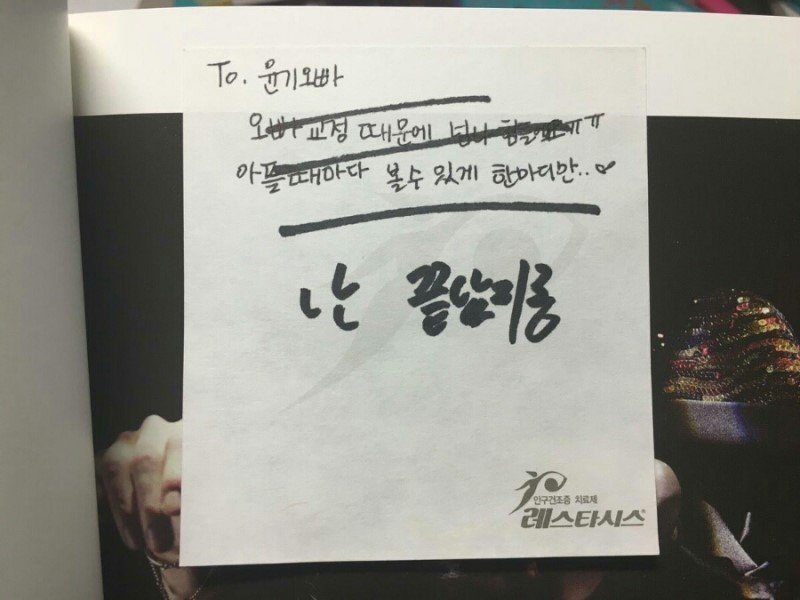 To. 윤기오빠
오빠 교정 때문에 넘나 힘들어요ㅠㅠ
아플때마다 볼수 있게 한마디만..
난 끝남미롱
안구건조증 치료제
레스타시스